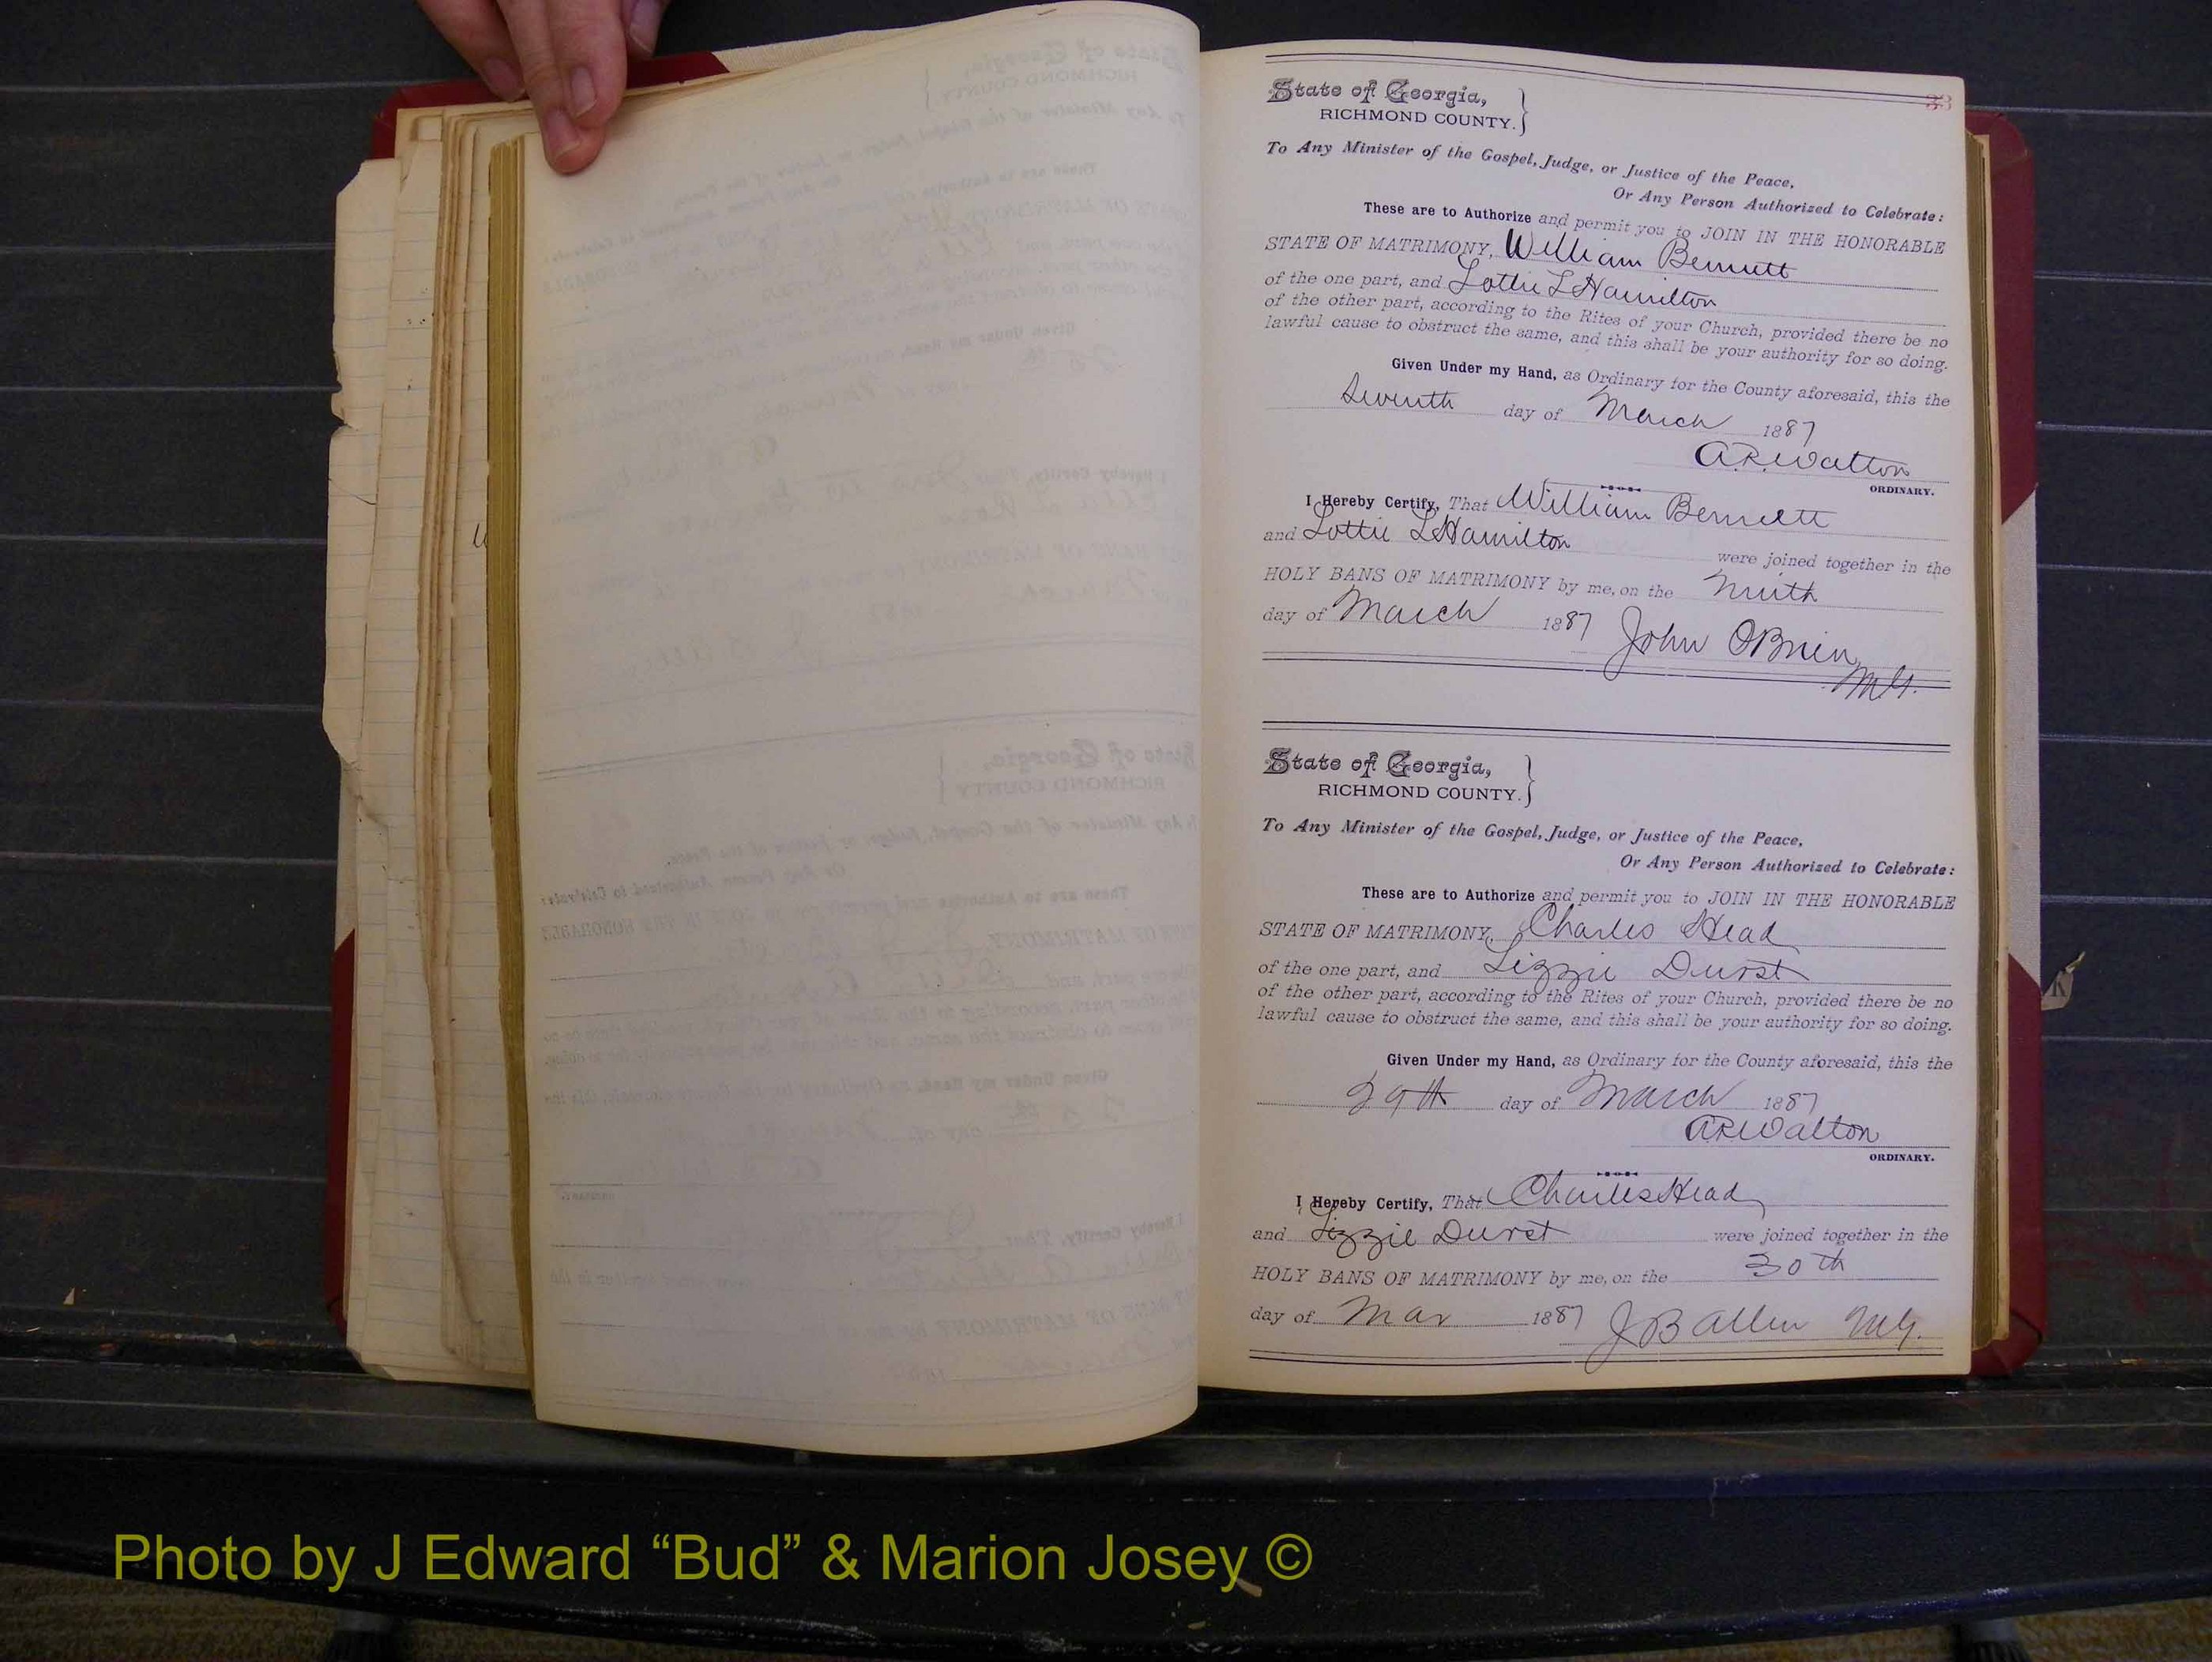 33
State of Georgia,
RICHMOND COUNTY.
To Any Minister of the Gospel, Judge, or Justice of the Peace,
Or Any Person Authorized to Celebrate:
These are to Authorize and permit you to JOIN IN THE HONORABLE
STATE OF MATRIMONY, William Bennett
of the one part, and Lottie L Hamilton
of the other part, according to the Rites of your Church, provided there be no
lawful cause to obstruct the same, and this shall be your authority for so doing.
Given Under my Hand, as Ordinary for the County aforesaid, this the
Seventh day of March 1887
A.R. Walton
ORDINARY.
I Hereby Certify, That William Bennett
and Lottie L Hamilton were joined together in the
HOLY BANS OF MATRIMONY by me, on the Ninth
day of March 1887 John OBrien
MG.
State of Georgia,
RICHMOND COUNTY.
To Any Minister of the Gospel, Judge, or Justice of the Peace,
Or Any Person Authorized to Celebrate:
These are to Authorize and permit you to JOIN IN THE HONORABLE
STATE OF MATRIMONY, Charles Head
of the one part, and Lizzie Durst
of the other part, according to the Rites of your Church, provided there be no
lawful cause to obstruct the same, and this shall be your authority for so doing.
Given Under my Hand, as Ordinary for the County aforesaid, this the
29th day of March 1887
A.R. Walton
ORDINARY.
I Hereby Certify, That Charles Head
and Lizzie Durst were joined together in the
HOLY BANS OF MATRIMONY by me, on the 30th
day of Mar 1887 J B Allen MG.
K
Photo by J Edward “Bud” & Marion Josey ©